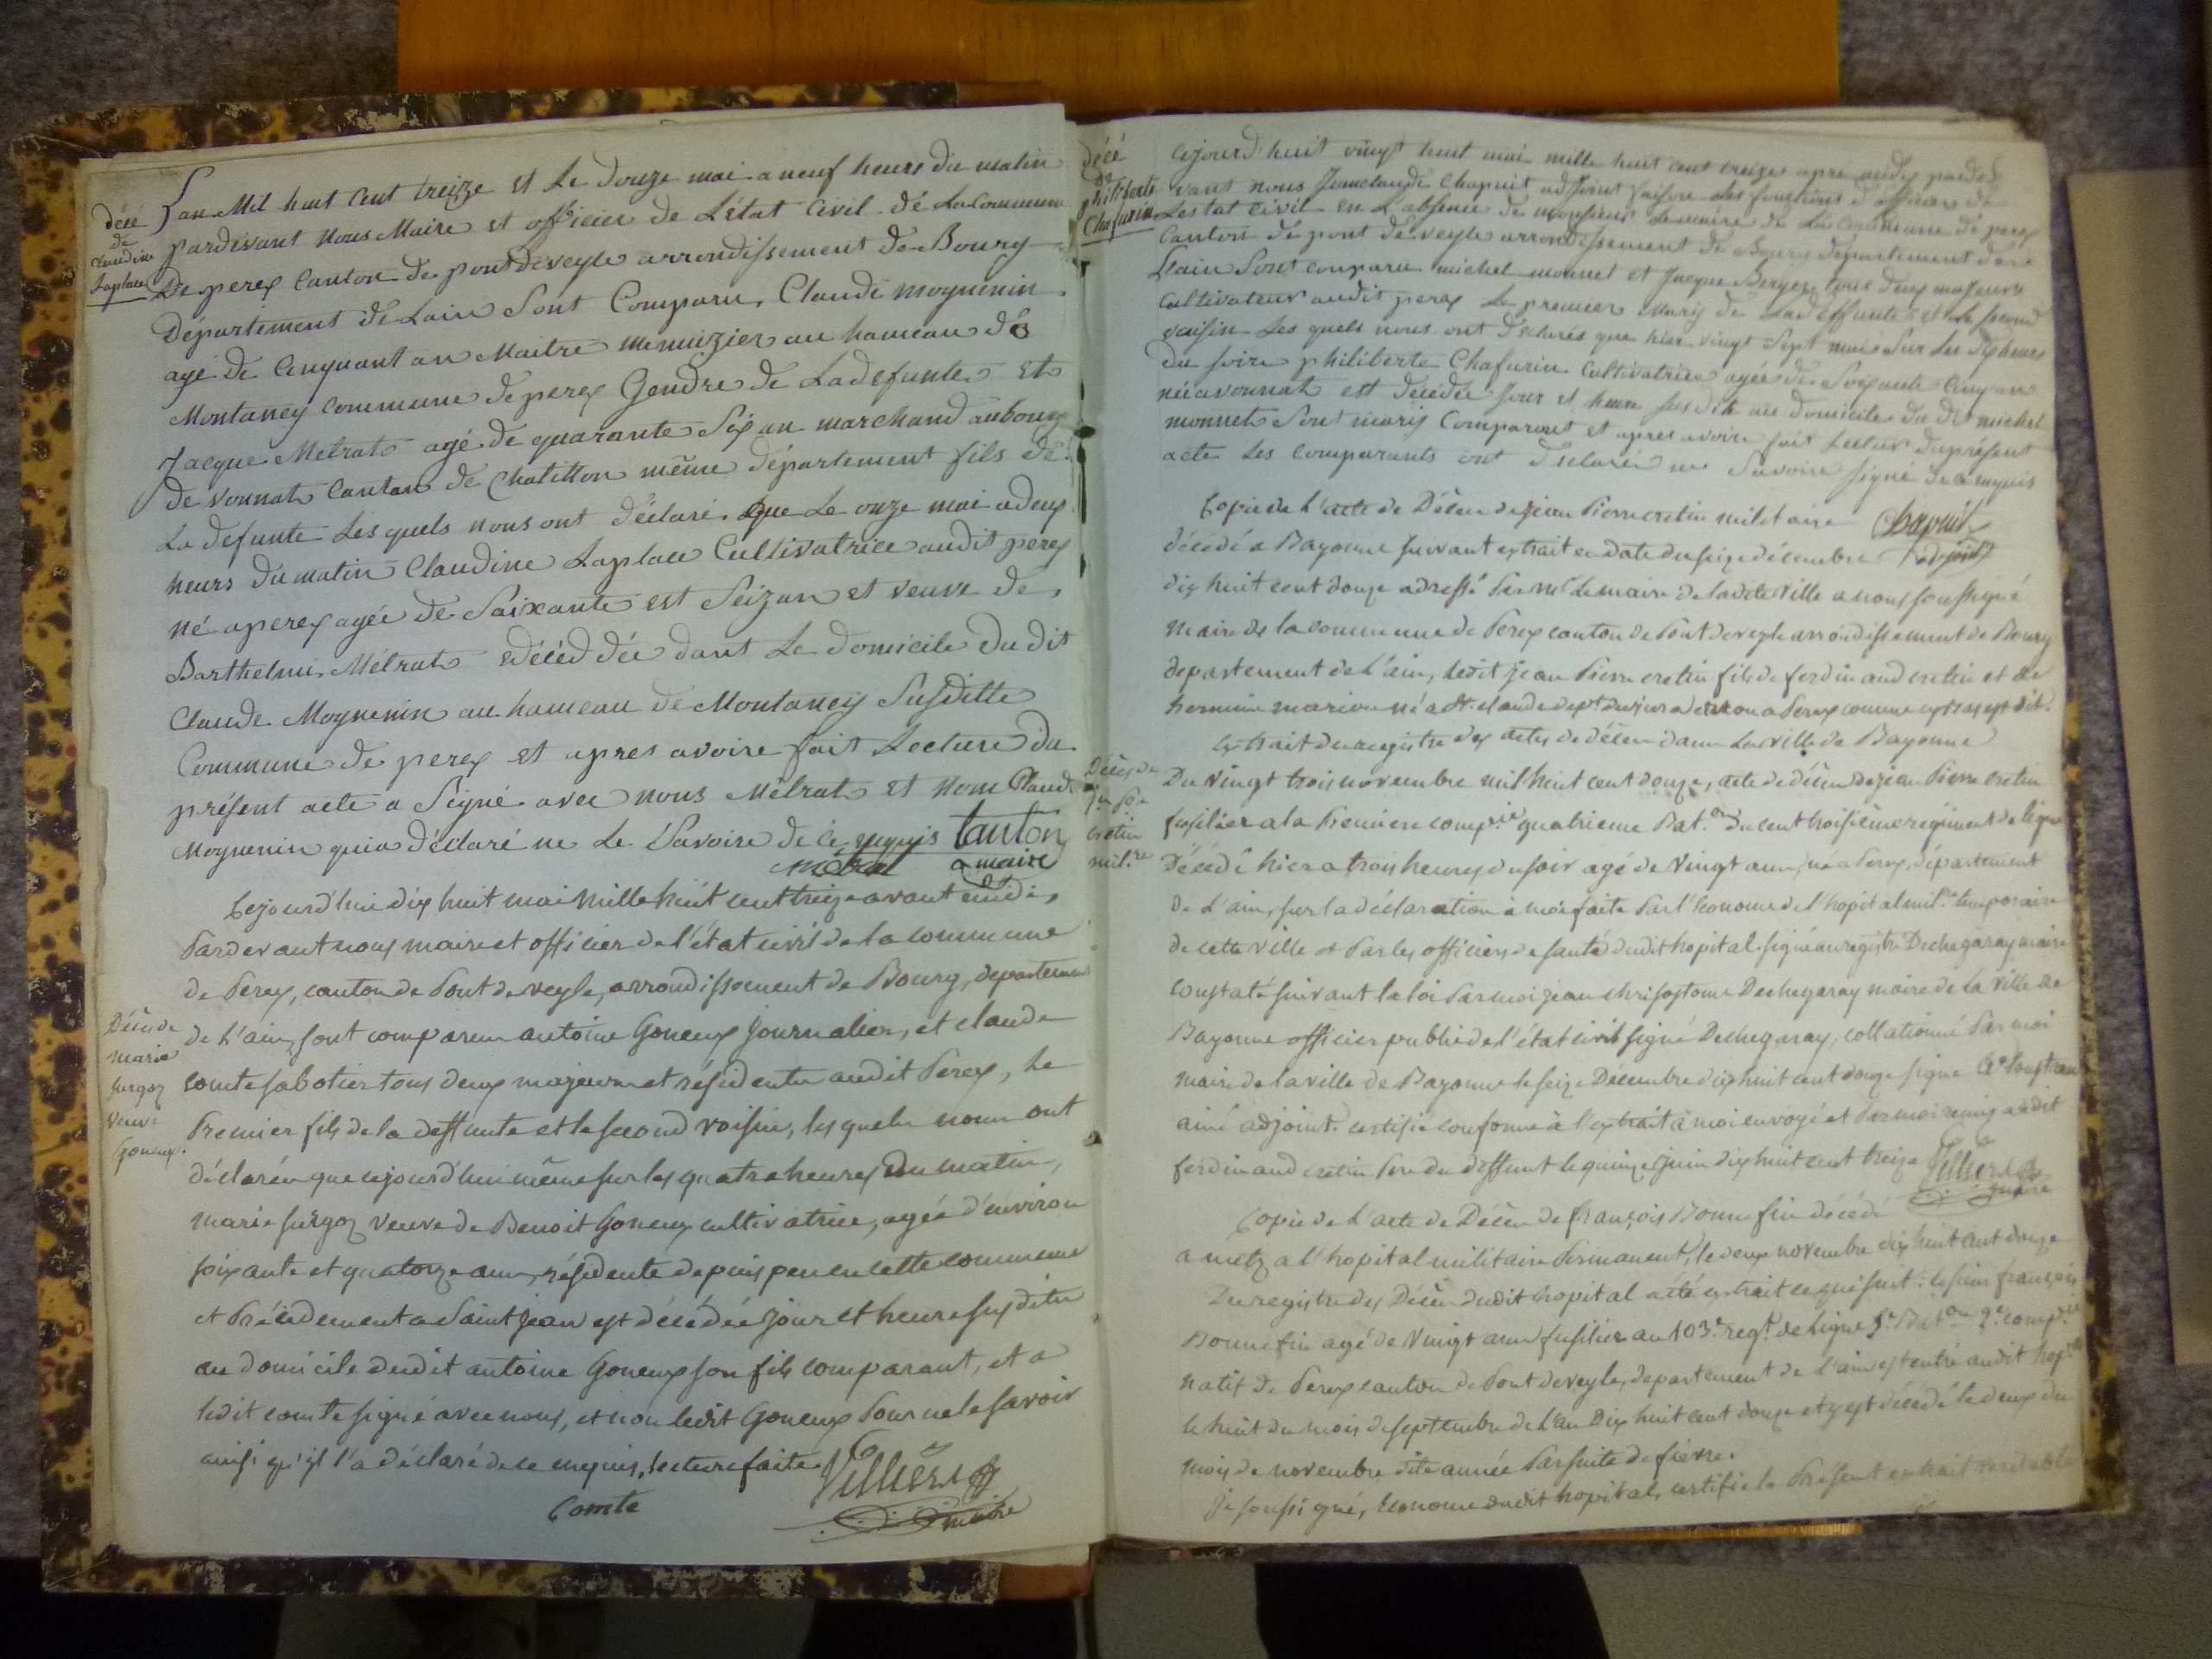 décé
de
Claudine
Laplace
L'an Mil huit Cent treize et Le Douze mai a neuf heurs du matin
pardevant Nous Maire et officier de L'état Civil dé La Commune
De perex Canton de pontdeveyle arrondissement de Bourg
Département de Lain Sont Comparu, Claude moguenin
agé de Cinquant an Maitre menuizier au hameau dé
Montaney Commune de perex Gendre de La defunte et
Jacque Metrat agé de quarante Six an marchand aubourg
de Vonnat Canton de Chatillon même département fils de
La defunte Les quels nous ont déclaré que Le onze mai a deux
heurs du matin Claudine Laplace Cultivatrice audit perex
né a perex agée de Saixante est Seizan et veuve de
Barthelmi Métrat décéddée dant Le domicile du dit
Claude Moguenin au hameau de Montaney Susditte
Commune de perex et apres avoire fait Lecture du
présent acte a Signé avec nous Métrat et nom Claude
Moguenin qui a déclaré ne Le Savoire de ce requis tanton
métrat a maire
Décès de
marie
surgoz
veuve
Goneux.
Cejourd'hui dix huit mai mille huit cent treize avant midi,
Pardevant nous maire et officier de l'état civil de la commune
de Perex, canton de Pont de veyle, arrondissement de Bourg, departement
de l'ain, sont comparus antoine Goneux journalier, et claude
comte sabotier tous deux majeurs et résidents audit Perex, le
Premier fils de la deffunte et le second voisin, les quels nous ont
déclarés que cejourd'hui même sur les quatre heures du matin,
marie surgoz veuve de Benoit Goneux cultivatrice, agée d'environ
soixante et quatorze ans, résidente depuis peu en cette commune
et Précédemment a Saint jean est décédée jour et heure susdits
au domicile dudit antoine Goneux son fils comparant, et a
ledit comte signé avec nous, et non ledit Goneux Pour ne le savoir
ainsi qu'il l'a déclaré de ce enquis, lecture faite.
Comte
Villiers
maire
décé
de
philiberte
Chafurin
Cejourd huit vingt huit mai mille huit cent treize apre midy parde
vant nous Jeanclaude Chapuit adjoint faisore des fonctions d officier de
Lestat Civil en L absence de monsieur Le maire de La Commune de perex
Canton de pont de veyle arrondissement de Bourg département de
Lain Sont comparu michel monnet et Jacque Berger tous deux majeurs
Cultivateur audit perex Le premier Mary de La deffunte et Le second
vaisin Les quels nous ont déclarés que hier vingt Sept mai Sur Les Six heurs
du soire philiberte Chafurin Cultivatrice agée de Soixante Cinq an
né a vonnat est décédée Jour et heure susdit au domicile du dit michel
monnet Son maris Comparant et apres avoire fait Lectur du présent
acte Les Comparants ont déclarés ne Savoire Signé de ce requis
Chapuit
adjoint
Copie de l'acte de Décès de jean Pierre cretin militaire
décédé a Bayonne suivant extrait en date du seize décembre
dix huit cent douze adressé Par Mr le maire de ladite ville a nous soussigné
maire de la commune de Perex canton de Pont de veyle arrondissement de Bourg
departement de L'ain, ledit jean Pierre cretin fils de ferdinand cretin et de
hermine marion né a St. claude dept du jura demeurant a Perex comme cy est dit.
Décès de
jn Pre
cretin
milre
Extrait du registre des actes de décès dans la ville de Bayonne
Du vingt trois novembre mil huit cent douze, acte de décès de jean Pierre cretin
fusilier a la Premiere compie quatrieme Baton du cent troisieme régiment de ligne
Décédé hier a trois heures du soir agé de vingt ans, né a Perex, département
de L'ain, sur la déclaration à moi faite Par l'économe de l'hopital mil.re temporaire
de cette ville et Par les officiers de santé dudit hopital. signé au registre Dechegaray maire
constaté suivant la loi Par moi jean chrisostome Dechegaray maire de la ville de
Bayonne officier public de l'état civil signé Dechegaray, collationné Par moi
maire de la ville de Bayonne le seize Décembre dix huit cent douze signé
ainé adjoint. certifié conforme à l'extrait à moi envoyé et Par moi remis audit
ferdinand cretin Pere du deffunt le quinze juin dix huit cent treize Villiers
maire
Copie de L'acte de Décès de françois Bonnefin décédé
a metz a l'hopital militaire Permanent, le deux novembre dix huit cent douze
Du registre des Décès dudit hopital a été extrait ce qui suit: le sieur françois
Bonnefin agé de vingt ans fusilier au 103e regt. de ligne 5e Baton 2e compie
natif de Perex canton de Pont de veyle, departement de l'ain est entré audit hopal
le huit du mois de septembre de l'an dix huit cent douze et y est décédé le deux du
mois de novembre dite année Par suite de fievre.
je soussigné, économe dudit hopital, certifie le Présent extrait veritable